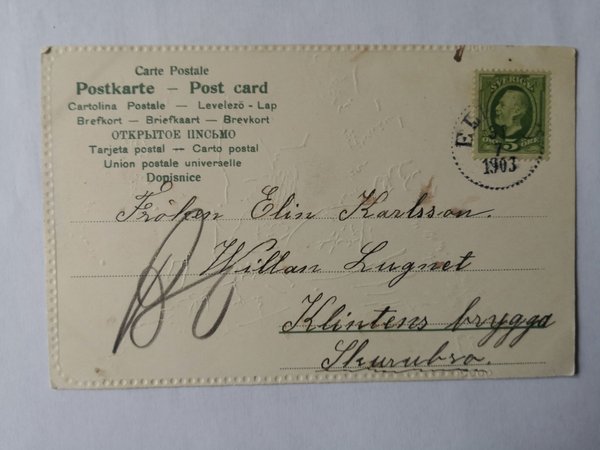 Carte Postale
Postkarte — Post card
Cartolina Postale — Levelező - Lap
Brefkort — Briefkaart — Brevkort
ОТКРЫТОЕ ПИСЬМО
Tarjeta postal — Carto postal
Union postale universelle
Dopisnice
SVERIGE
5
ÖRE
EL
1903
Fröken Elin Karlsson.
Willan Lugnet
Klintens brygga
Skurubro.